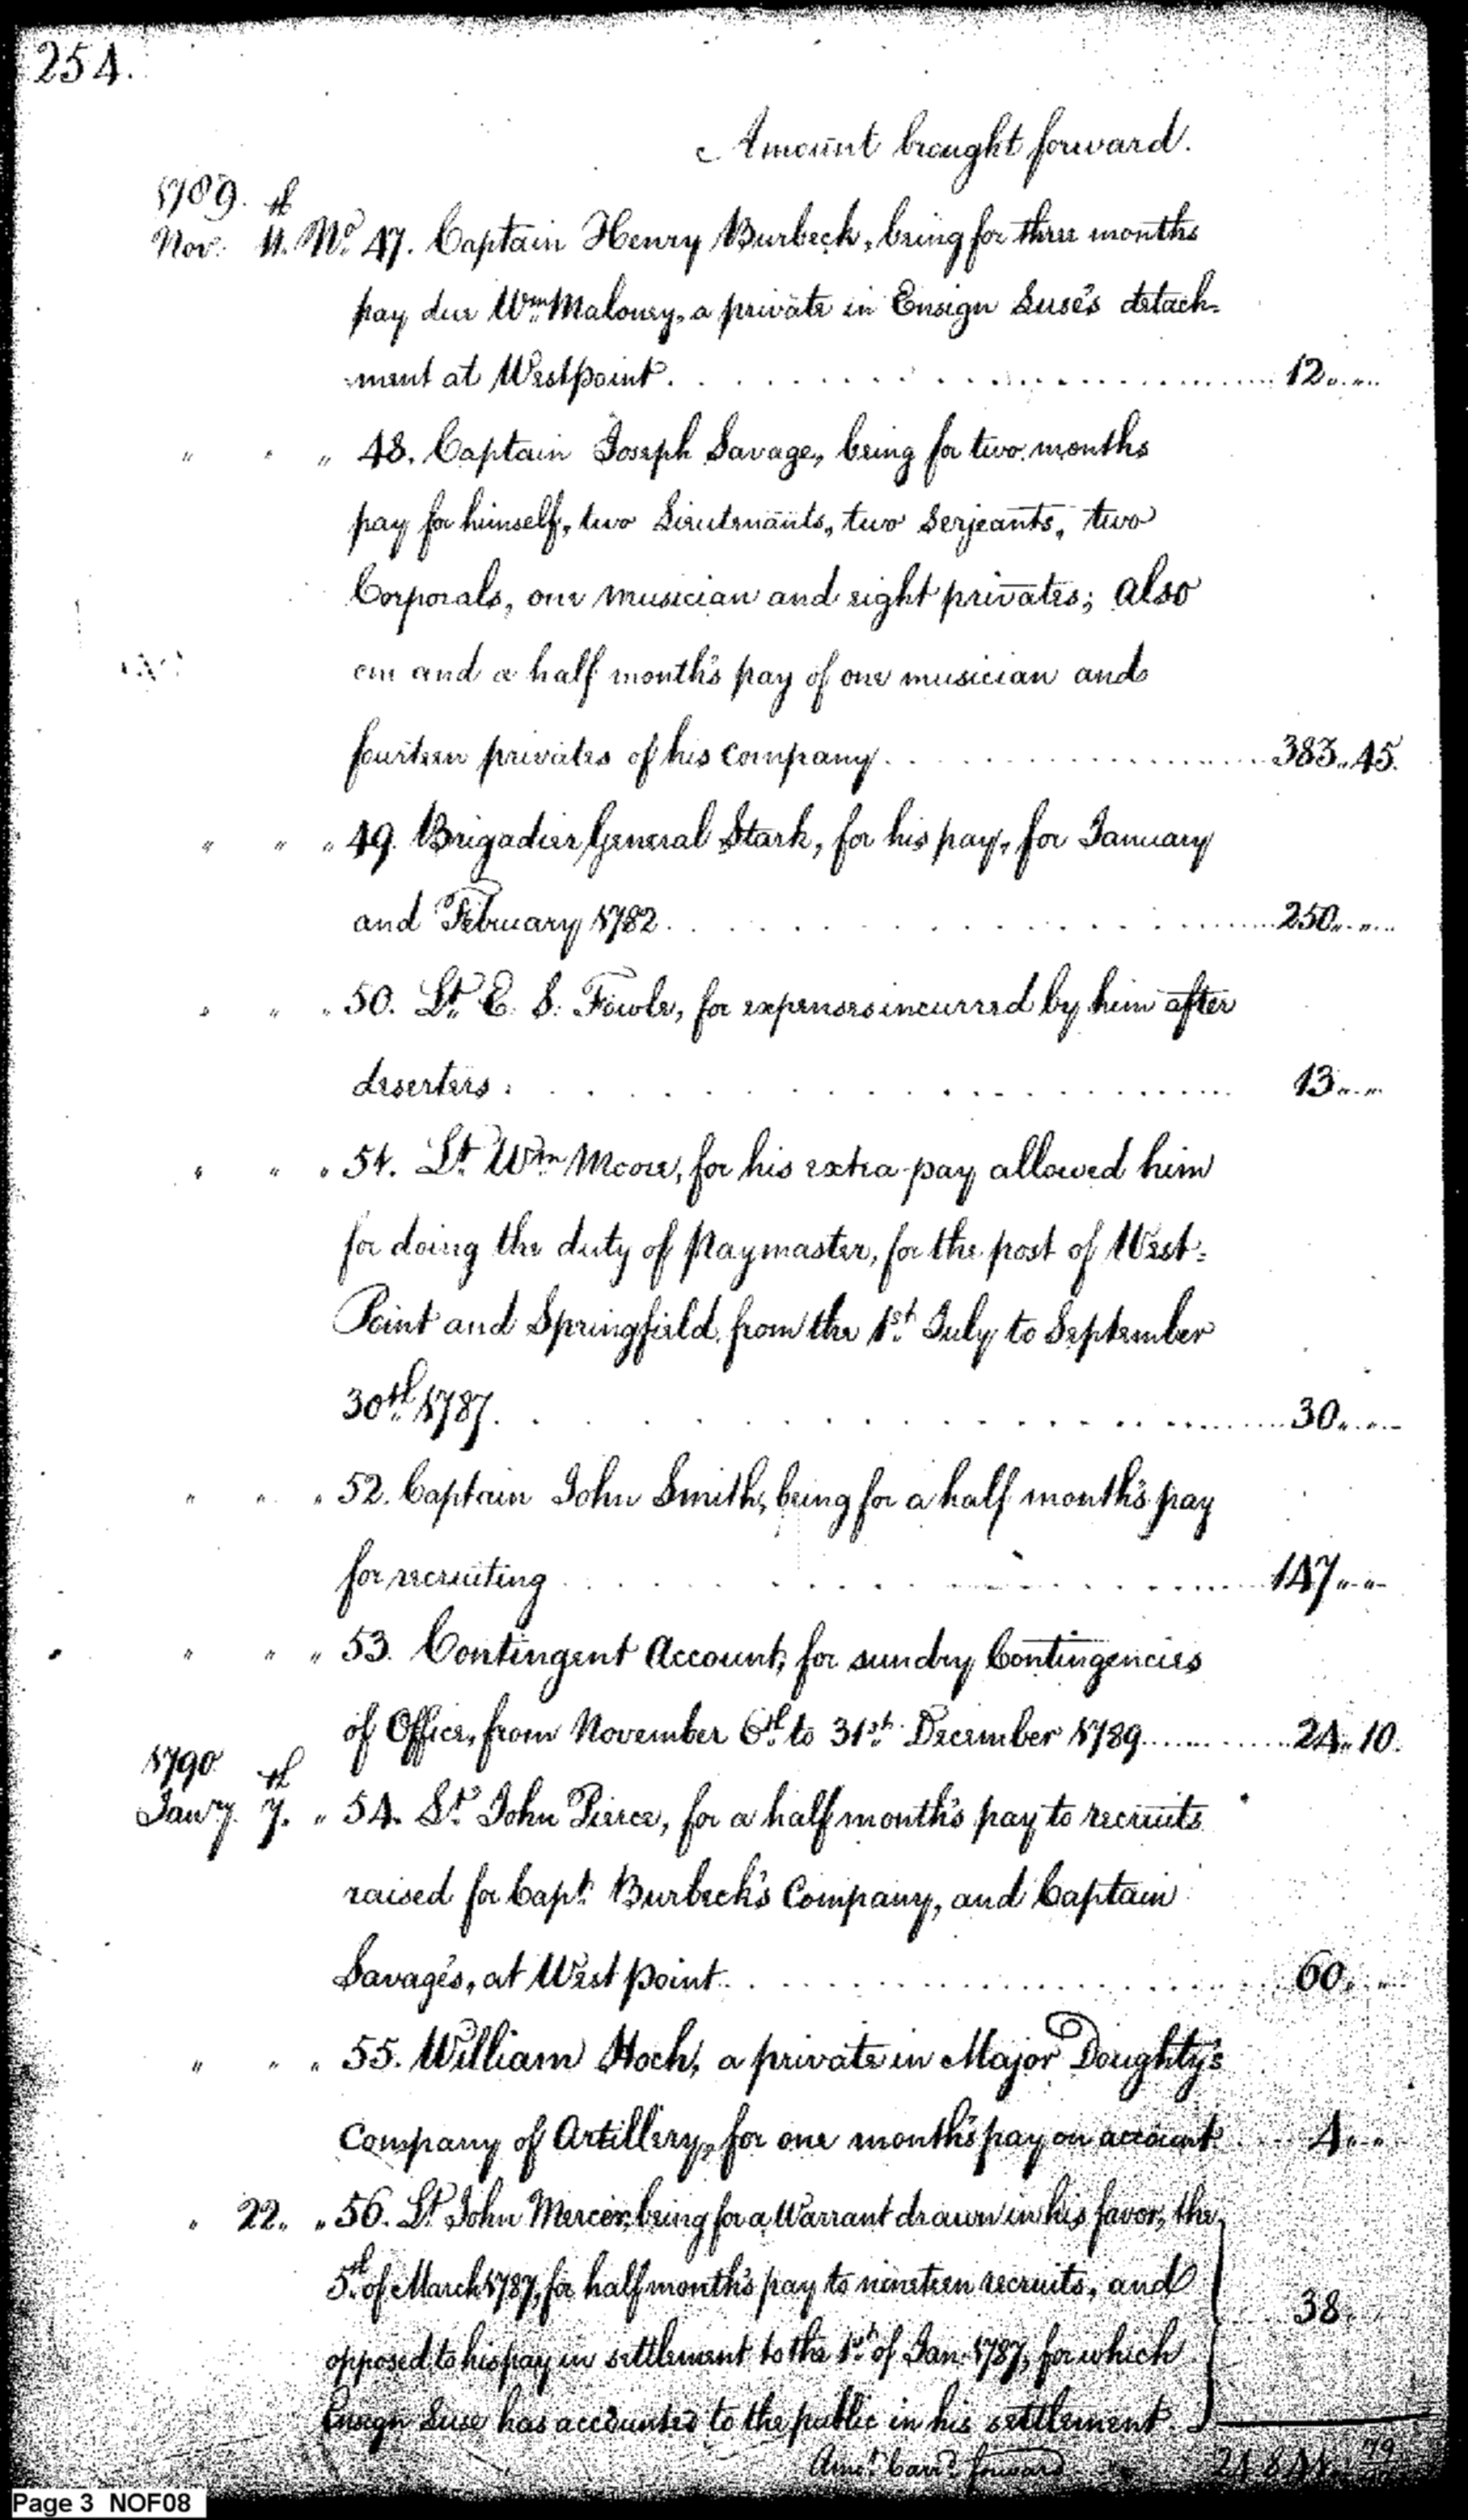 254.
Amount brought forward.
1789.
Nov. 11.th No. 47. Captain Henry Burbeck, being for three months
pay due Wm. Maloney, a private in Ensign Luse's detach-
ment at Westpoint. 12 .. ..
" " " 48. Captain Joseph Savage, being for two months
pay for himself, two Lieutenants, two Serjeants, two
Corporals, one musician and eight privates; also
one and a half month's pay of one musician and
fourteen privates of his company. 383.. 45.
" " " 49. Brigadier General Stark, for his pay, for January
and February 1782. 250 .. ..
" " " 50. Lt. E. S. Fowle, for expenses incurred by him after
deserters. 13 .. ..
" " " 51. Lt. Wm. Moore, for his extra pay allowed him
for doing the duty of Paymaster, for the post of West-
Point and Springfield, from the 1st. July to September
30th. 1787. 30 .. ..
" " " 52. Captain John Smith, being for a half month's pay
for recruiting 147 .. ..
" " " 53. Contingent Account, for sundry Contingencies
of Office, from November 6th. to 31st. December 1789. 24.. 10.
1790
Jany. 7.th " 54. Lt. John Pierce, for a half month's pay to recruits
raised for Capt. Burbeck's Company, and Captain
Savage's, at West point. 60 .. ..
" " " 55. William Hoch, a private in Major Doughty's
Company of Artillery, for one month's pay on account. 4 .. ..
" 22. " 56. Lt. John Mercer, being for a Warrant drawn in his favor, the
5th. of March 1787, for half month's pay to nineteen recruits, and
38
opposed to his pay in settlement to the 1st. of Jan. 1787, for which
Ensign Luse has accounted to the public in his settlement.
Amt. Carrd. forward
Page 3 NOF08